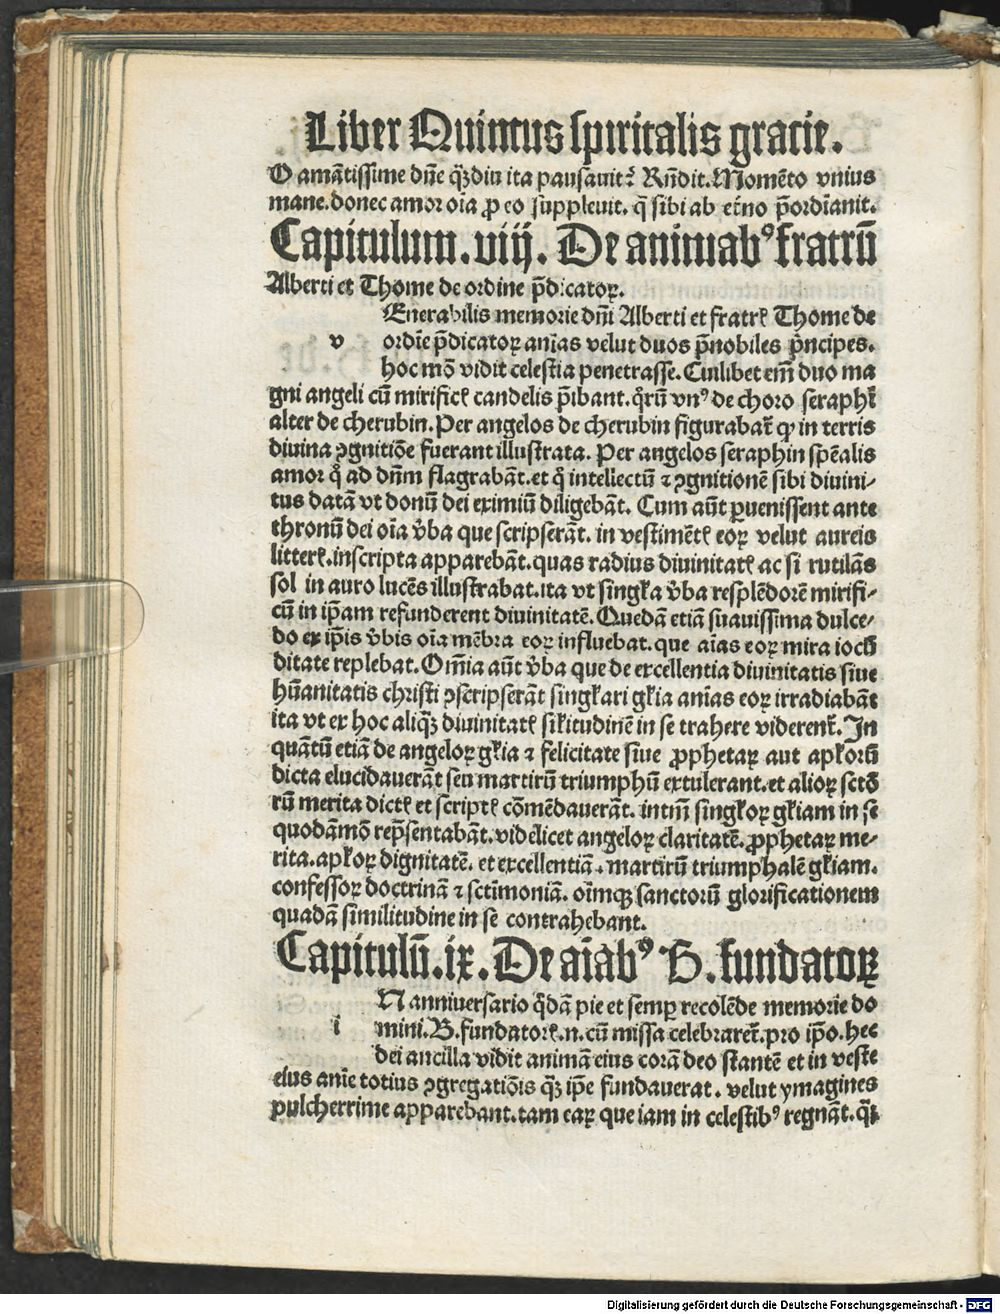 Liber Quintus spiritalis gracie.
O amãtissime dñe q̃ȝdiu ita pausauit? Rñdit. Momẽto vnius
mane. donec amor oĩa ꝓ eo suppleuit. q̃ sibi ab etĩno p̃ordĩanit.
Capitulum. viij. De animabꝰ fratrũ
Alberti et Thome de ordine p̃dicatoꝝ.
Enerabilis memorie dñi Alberti et fratrꝭ Thome de
v ordĩe p̃dicatoꝝ anĩas velut duos p̃nobiles p̃ncipes.
hoc mõ vidit celestia penetrasse. Cuilibet em̃ duo ma
gni angeli cũ mirificꝭ candelis p̃ibant. q̃rũ vnꝰ de choro seraphĩ
alter de cherubin. Per angelos de cherubin figurabat̃ ꝙ in terris
diuina ꝯgnitiõe fuerant illustrata. Per angelos seraphin sp̃ẽalis
amor q̃ ad dñm flagrabãt. et q̃ intellectũ ⁊ ꝯgnitionẽ sibi diuini-
tus datã vt donũ dei eximiũ diligebãt. Cum aũt ꝑuenissent ante
thronũ dei oĩa v̾ba que scripserãt. in vestimẽtꝭ eoꝝ velut aureis
litterꝭ. inscripta apparebãt. quas radius diuinitatꝭ ac si rutilãs
sol in auro lucẽs illustrabat. ita vt singl̃a v̾ba resplẽdorẽ mirifi-
cũ in ip̃am refunderent diuinitatẽ. Quedã etiã suauissima dulce-
do ex ip̃is v̾bis oĩa mẽbra eoꝝ influebat. que aĩas eoꝝ mira iocũ
ditate replebat. Om̃ia aũt v̾ba que de excellentia diuinitatis siue
hũanitatis christi ꝯscripserãt singl̃ari gl̃ia anĩas eoꝝ irradiabãt
ita vt ex hoc aliq̃ȝ diuinitatꝭ sil̃itudinẽ in se trahere viderent̃. In
quãtũ etiã de angeloꝝ gl̃ia ⁊ felicitate siue ꝓphetaꝝ aut apl̃orũ
dicta elucidauerãt seu martirũ triumphũ extulerant. et alioꝝ sctõ
rũ merita dictꝭ et scriptꝭ cõmẽdauerãt. intm̃ singl̃oꝝ gl̃iam in se
quodãmõ rep̃sentabãt. videlicet angeloꝝ claritatẽ. ꝓphetaꝝ me-
rita. apl̃oꝝ dignitatẽ. et excellentiã. martirũ triumphalẽ gl̃iam.
confessoꝝ doctrinã ⁊ sctĩmoniã. oĩmqȝ sanctorũ glorificationem
quadã similitudine in se contrahebant.
Capitulũ. ix. De aĩabꝰ B. fundatoꝝ
N anniuersario q̃dã pie et semꝑ recolẽde memorie do
i mini. B. fundatorꝭ. n. cũ missa celebraret̃. pro ip̃o. hec
dei ancilla vidit animã eius corã deo stantẽ et in veste
eius anĩe totius ꝯgregatiõis q̃ȝ ip̃e fundauerat. velut ymagines
pulcherrime apparebant. tam eaꝝ que iam in celestibꝰ regnãt. q̃ȝ
Digitalisierung gefördert durch die Deutsche Forschungsgemeinschaft - DFG